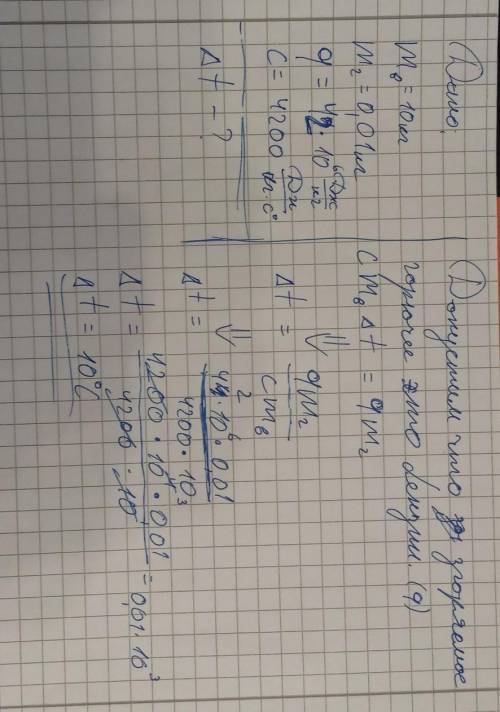 Дано:
m_в = 10 кг
m_г = 0,01 кг
q = 42·10⁶ Дж/кг
c = 4200 Дж/кг·c°
Δt - ?
Допустим что згоряемое
горючее это бензин. (q)
cm_вΔt = qm_г
⇓
Δt = qm_г / cm_в
⇓
Δt = 42·10⁶·0,01 / 4200·10³
Δt = 4200·10⁴·0,01 / 4200·10 = 0,01·10³
Δt = 10°C